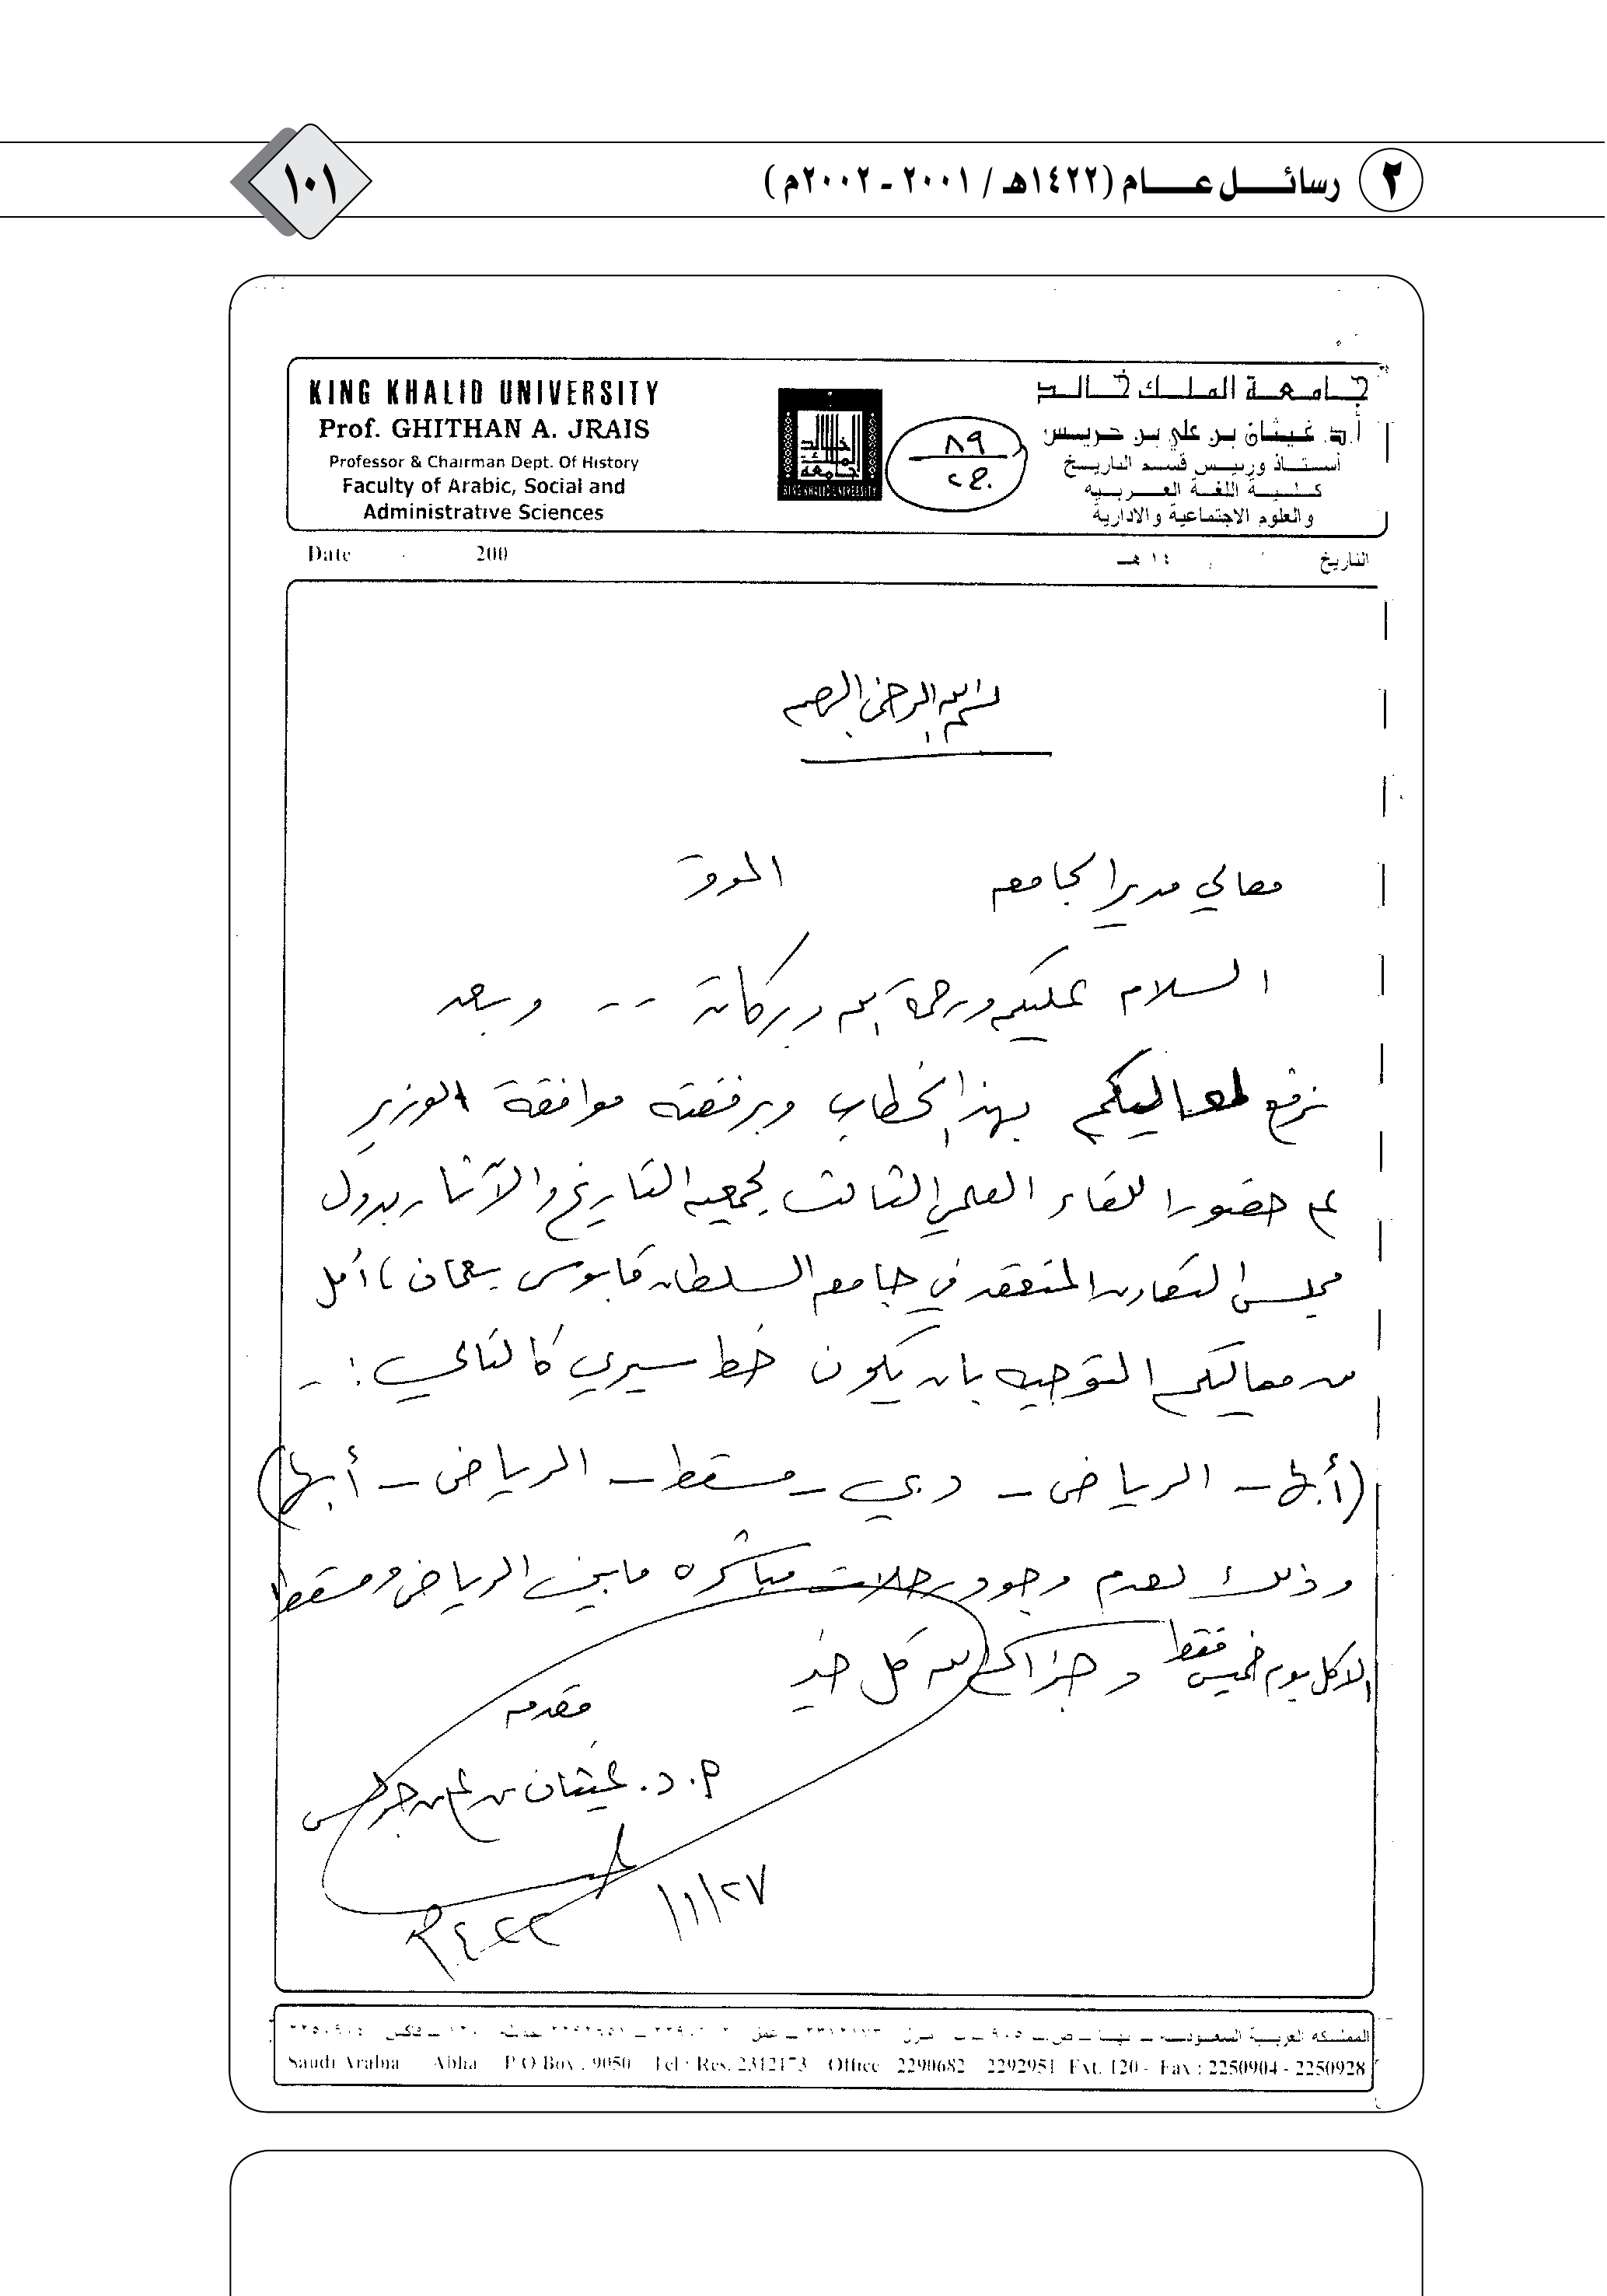 ٢ رسائل عام (١٤٢٢هـ / ٢٠٠١ - ٢٠٠٢م)
١٠١
KING KHALID UNIVERSITY
Prof. GHITHAN A. JRAIS
Professor & Chairman Dept. Of History
Faculty of Arabic, Social and
Administrative Sciences
جامعة الملك خالد
أ.د. غيثان بن علي بن جريس
أستاذ ورئيس قسم التاريخ
كلية اللغة العربية
والعلوم الاجتماعية والادارية
KING KHALID UNIVERSITY
٨٩
Date 200
التاريخ ١٤ هـ
بسم الله الرحمن الرحيم
معالي مدير الجامعه الموقر
السلام عليكم ورحمة الله وبركاته -- وبعد
نرفع لمعاليكم بهذا الخطاب وبرفقته موافقة الوزير
على حضور اللقاء العلمي الثالث لجمعيه التاريخ والآثار بدول
مجلس التعاون المنعقد في جامعه السلطان قابوس بعمان ، أمل
من معاليكم التوجيه بان يكون خط سيري كالتالي : -
(أبها - الرياض - دبي - مسقط - الرياض - أبها)
وذلك لعدم وجود رحلات مباشره مابين الرياض ومسقط
الا كل يوم خميس فقط وجزاكم الله كل خير
مقدمه
أ.د. غيثان بن علي بن جريس
١/٢٧/
١٤٢٢
المملكة العربية السعودية - أبها - ص.ب ٩٠٥٠
Saudi Arabia Abha P O Box : 9050 Tel : Res. 2312173 Office 2290682 2292951 Ext. 120 - Fax : 2250904 - 2250928